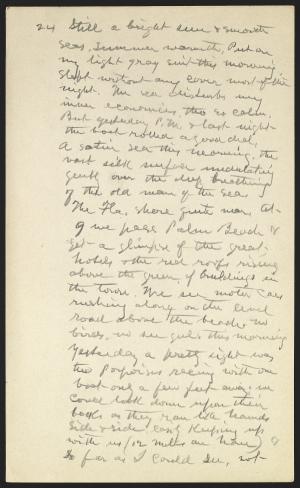 24 Still a bright sun & smooth
seas, summer warmth, Put on
my light gray suit this morning
Slept without any cover most of the
night. The sea disturbs my
inner economies, tho so calm.
But yesterday P.M. & last night
the boat rolled a good deal,
A satin sea this morning, the
vast silk surface undulating
gently over the deep breathing
of the old man of the sea
The Fla. shore quite near, at
9 we pass Palm Beach &
get a glimpse of the great
hotels & the red roofs rising
above the green, of buildings in
the town. We see motor cars
rushing along on the level
road above the beach - no
birds, no sea gulls this morning
Yesterday a pretty sight was
two Porpoises racing with our
boat only a few feet away, we
could look down upon their
backs as they ran like hounds
side & side easily keeping up
with us (12 miles an hour) &
so far as I could see, not